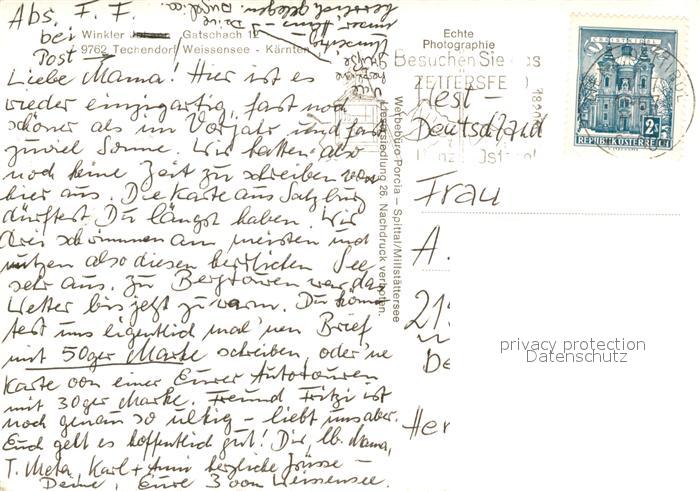 Abs. F. F.
bei Winkler Gatschach 12
Post 9762 Techendorf Weissensee - Kärnten
Liebe Mama! Hier ist es
wieder einzigartig, fast noch
schöner als im Vorjahr und fast
zuviel Sonne. Wir hatten also
noch keine Zeit zu schreiben von
hier aus. Die Karte aus Salzburg
dürftest Du längst haben. Wir
drei schwimmen am meisten und
nützen also diesen herrlichen See
sehr aus. Zu Bergtouren war das
Wetter bis jetzt zu warm. Du könn-
test uns eigentlich mal 'nen Brief
mit 50ger Marke schreiben, oder 'ne
Karte von einer Eurer Autotouren
mit 30ger Marke. Freund Fritzi ist
noch genau so ulkig - liebt uns aber.
Euch geht es hoffentlich gut! Dir, lb. Mama,
T. Meta, Karl + Anni herzliche Grüsse -
Deine, Eure 3 vom Weissensee.
Echte
Photographie
Werbebüro-Porcia - Spittal/Millstättersee
Liesersiedlung 26. Nachdruck verboten.
Besuchen Sie das
ZETTERSFELD
CHRISTKINDL
2S
REPUBLIK ÖSTERREICH
West -
Deutschland
Frau
A.
21
Her
privacy protection
Datenschutz